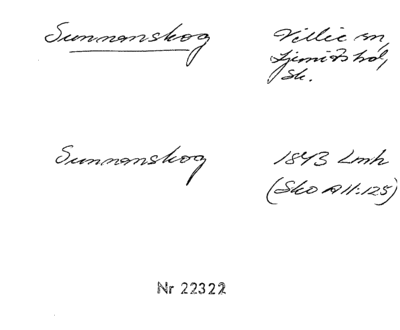 Sunnanskog
Villie sn,
Ljunits hd,
Sk.
Sunnanskog
1843 Lmh
(Sko A II:125)
Nr 22322